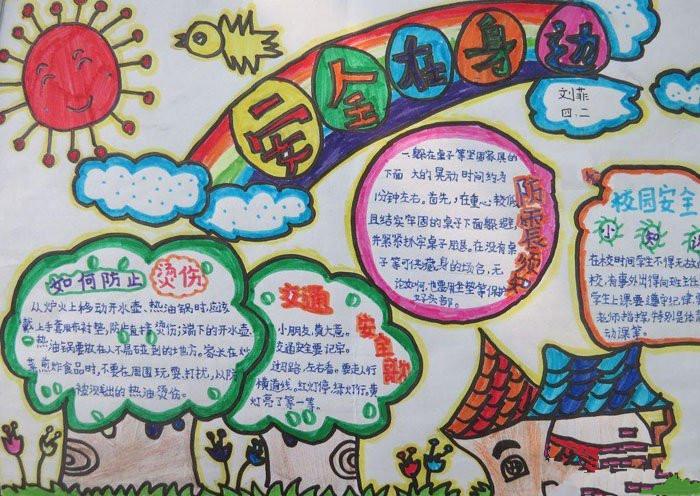 安全在身边
刘菲
四.二
一、躲在桌子等坚固家具的
下面 大的晃动时间约为
1分钟左右。首先,在重心较低
且结实牢固的桌子下面躲避,
并紧紧抓牢桌子用退。在没有桌
子等可供藏身的场合,无
论如何,也要用坐垫等保护
好头部。
防震须知
校园安全
小知
在校时间学生不得无故
校,有事外出得向班主任
学生上课要遵守纪律
老师指挥,特别是体
动课等。
如何防止烫伤
从炉火上移动开水壶、热油锅时,应该
戴上手套用布衬垫,防止直接烫伤;端下的开水壶、
热油锅要放在人不易碰到的地方。家长在炒
菜、煎炸食品时,不要在周围玩耍、打扰,以防
被溅出的热油烫伤。
交通安全歌
小朋友,莫大意。
交通安全要记牢。
过马路,左右看。要走人行
横道线,红灯停,绿灯行,黄
灯亮了等一等。